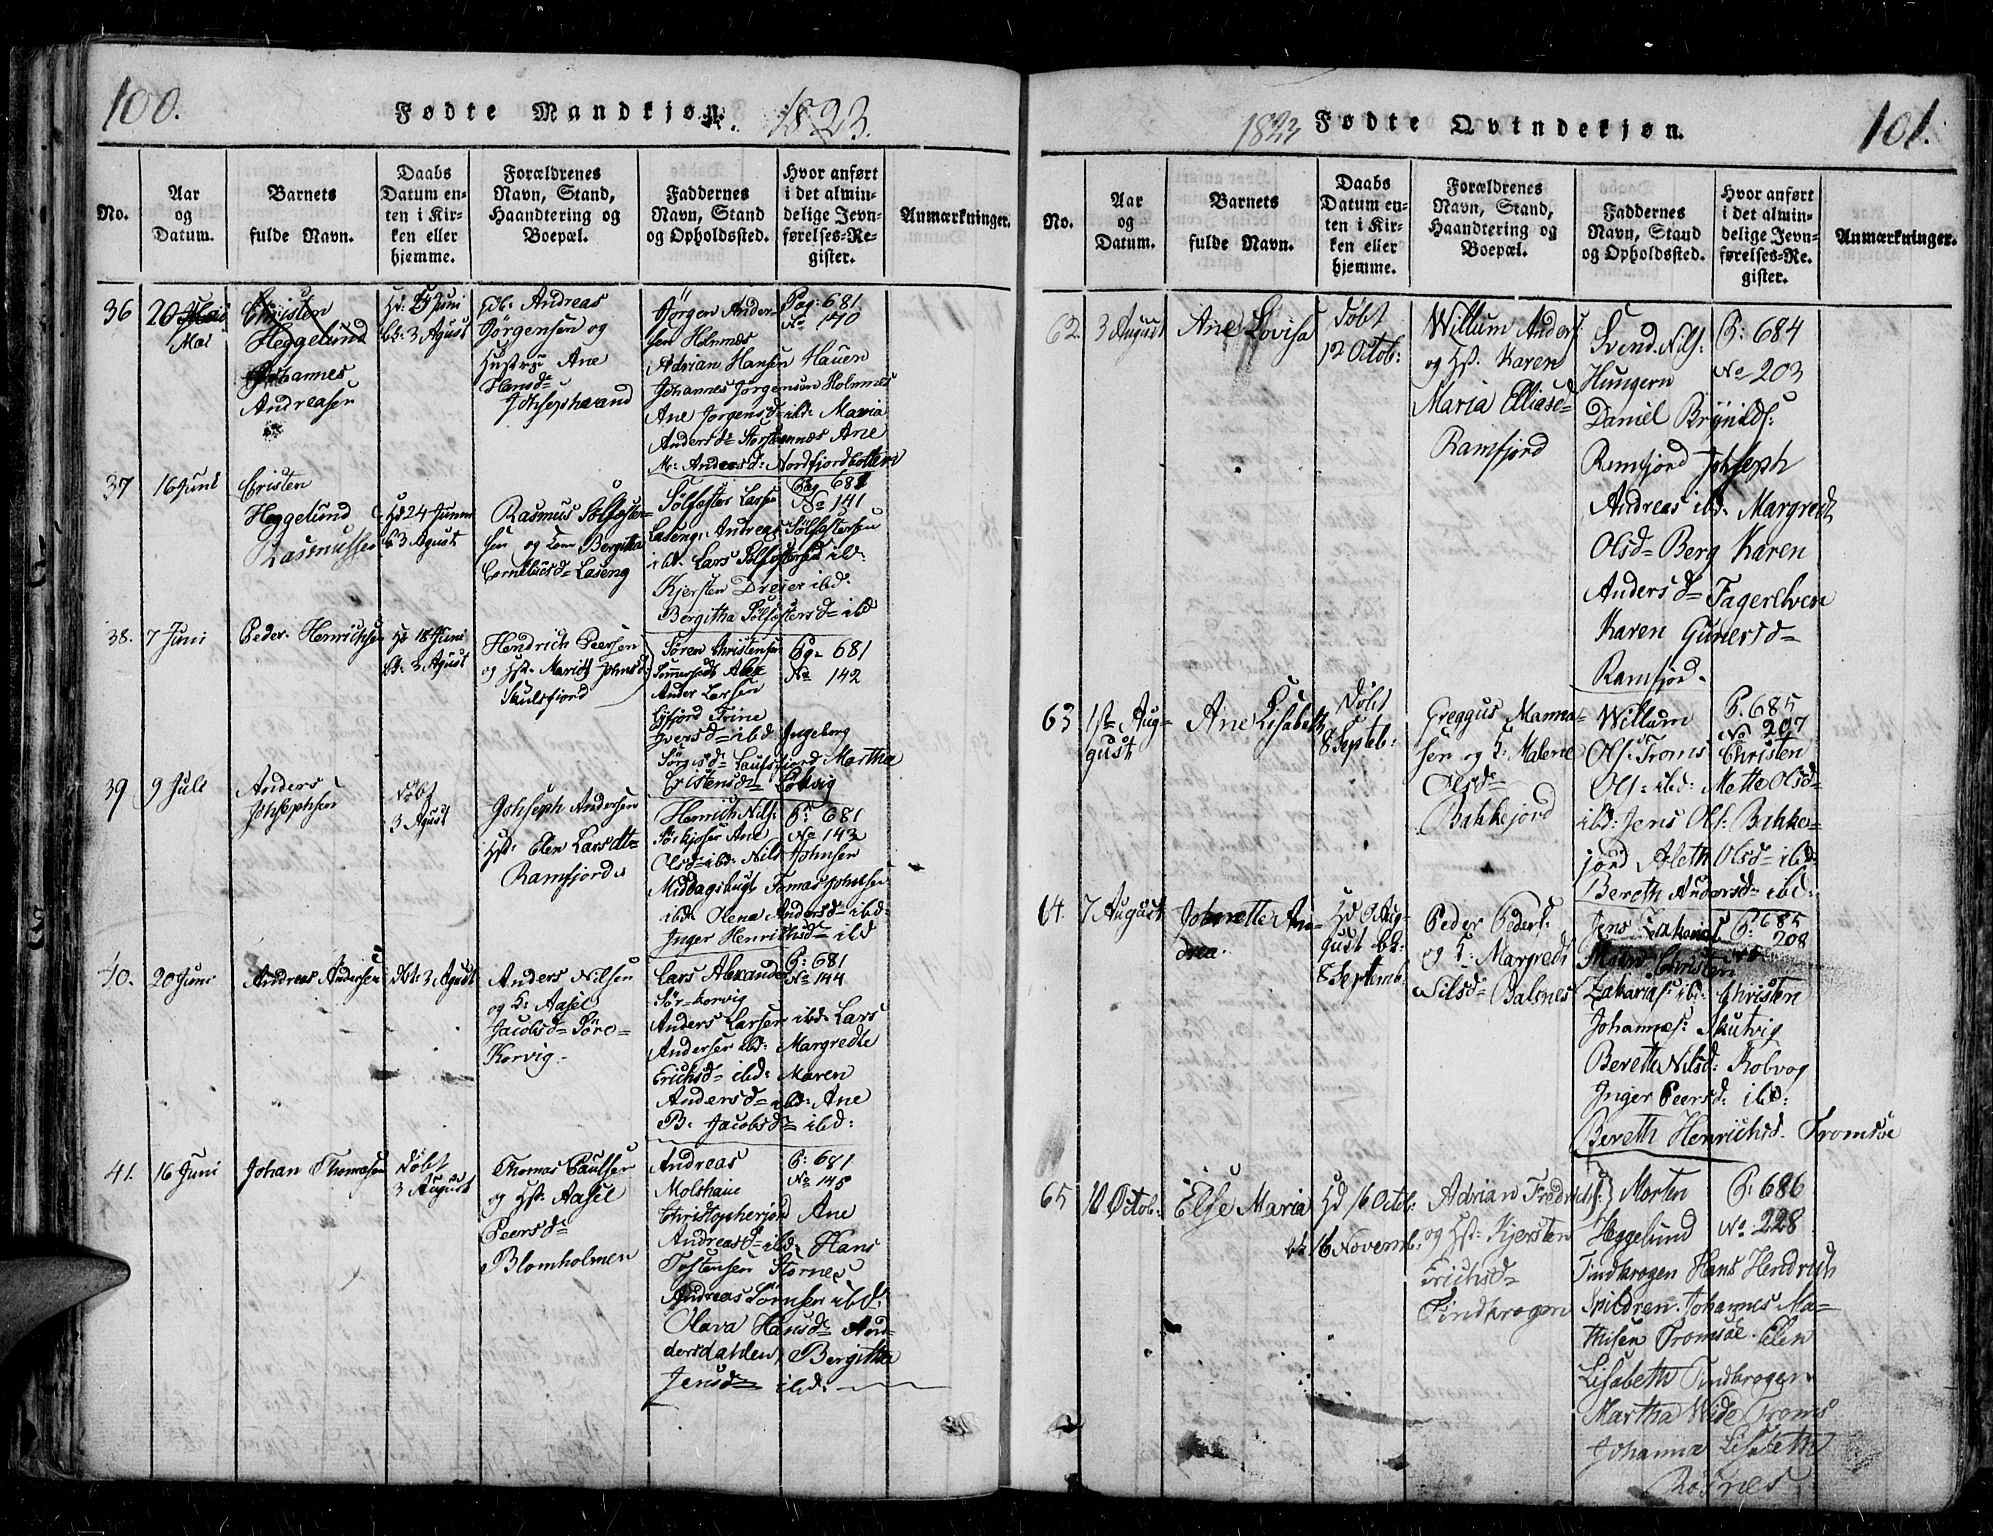 100.
Fødte Mandkjøn. 1823.
No.
Aar
og
Datum.
Barnets
fulde Navn.
Daabs
Datum en-
ten i Kir-
ken eller
hjemme.
Forældrenes
Navn, Stand,
Haandtering og
Boepæl.
Faddernes
Navn, Stand
og Opholdssted.
Hvor anført
i det almin-
delige Jevn-
førelses-Re-
gister.
Anmærkninger.
36
20
Mai
Christen
Heggelund
Johannes
Andreasen
Juni
3 Agust
Andreas
Jörgensen og
Hustrue Ane
Hansd
Jörgen Ander-
sen Holmnæs
Adrian Hansen Hauen
Johannes Jörgensen Holmnes
Ane Jörgensd ibd: Maria
Andersd Storstennæs Ane
M: Andersd: Nordfjordbotten
Pag: 681
No 140
37
16 Juni
Cristen
Heggelund
Rasmussen
Hd 24 Junni
3 Agust
Rasmus Solfester-
sen og Kone Bergitha
Corneliusd Laseng
Solfester Larsen
Laseng, Andreas Sölfestersen
ibd. Lars Sölfestersen ibd:
Kjersten Dreier ibd:
Bergitha Sölfestersd ibd
Pag 681
No 141
38.
7 Juni
Peder Henrichsen
Hd 18 Juni
3 Agust
Hendrich Peersen
og Hst. Marith
Skulsfjord
Sören Christensen
Alex
Ander Larsen
Trine
Iversd ibd Ingeborg
Martha
Cristensd
Pg 681
No 142
39
9 Juli
Anders
Johsephsen
Döbt
3 Agust
Johseph Andersen
Hst. Elen Larsdt
Ramfjord
Henrich Nils:
Ane
Olsd ibd: Nils Johnsen
Middagsbugt Tomas Johnsen
ibd. Olena Andersd ibd
Inger Henrichsd ibd
P: 681
No 143
40.
20 Juni
Andreas Andersen
Dbt: 3 Agust
Anders Nilsen
og H: Aasel
Jacobsd Söre
Korvig.
Lars Alexander
Sör-korvig
Anders Larsen ibd Lars
Andersen ibd: Margrethe
Erichsd ibd: Maren
Andersd ibd: Ane
B. Jacobsd ibd:
P: 681
No 144
41.
16 Juni
Johan Thomasen
Döbt
3 August
Thomas Paulsen
og Hst. Aasel
Peersd
Blomholmen
Andreas
Christopherjord Ane
Andreasd ibd: Hans
Tostensen Stornes
Andreas ibd.
Olava Hansd And-
dersdahlen, Bergitha
Jensd ibd.
P: 681
No 145
1823
Fødte Qvindekjøn.
101.
No.
Aar
og
Datum.
Barnets
fulde Navn.
Daabs
Datum en-
ten i Kir-
ken eller
hjemme.
Forældrenes
Navn, Stand,
Haandtering og
Boepæl.
Faddernes
Navn, Stand
og Opholdssted.
Hvor anført
i det almin-
delige Jevn-
førelses-Re-
gister.
Anmærkninger.
62.
3 August
Ane Lovisa
Döbt
12 Octob:
Willum Anders
og Hst. Karen
Maria Elliasd
Ramfjord
Svend Nils:
Hungern
Daniel Brynilds:
Ramfjord Johseph
Andreas ibd. Margreth
Olsd Berg Karen
Andersd Fagerelven
Karen Gunersd
Ramfjord.
P: 684
No 203
63
1ste Aug-
gust
Ane Lisabeth
Döbt
8 Septeb:
Greggus Manna-
sen og H: Malene
Olsd
Bakkejord
Willum
Ols: Troms Christen
Ols: ibd: Mette Olsd
ibd: Jens Ols: Bakke-
jord Aleth Olsd ibd:
Bereth Andersd ibd:
P. 685
No 207
64.
7 August
Johnette An-
drea.
Hd Aug-
gust bk:
8 Septemb:
Peder Peders:
og H: Margreth
Nilsd Balsnes
Jens Zakarias:
Christen
Zakarias: ibd: Christen
Johannes: Skutvig
Bereth Nilsd: Kobvog
Inger Peersd: ibd:
Bereth Henrichsd. Tromsöe
P: 685
208
65
10 Octob:
Else Maria
Hd 16 Octob:
16 Novemb:
Adrian Fredrichs:
og Hst. Kjersten
Erichsd
Tindkrogen
Morten
Heggelund
Tindkrogen Hans Hendrich
Johannes Ma-
thisen Tromsöe. Elen
Lisabeth Tindkrogen
Martha Wide Troms
Johanna Lisabeth
Rösnes
P: 686
No 228